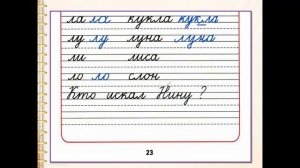 ла ла кукла кукла
лу лу луна луна
ли лиса
ло ло слон
Кто искал Нину ?
23